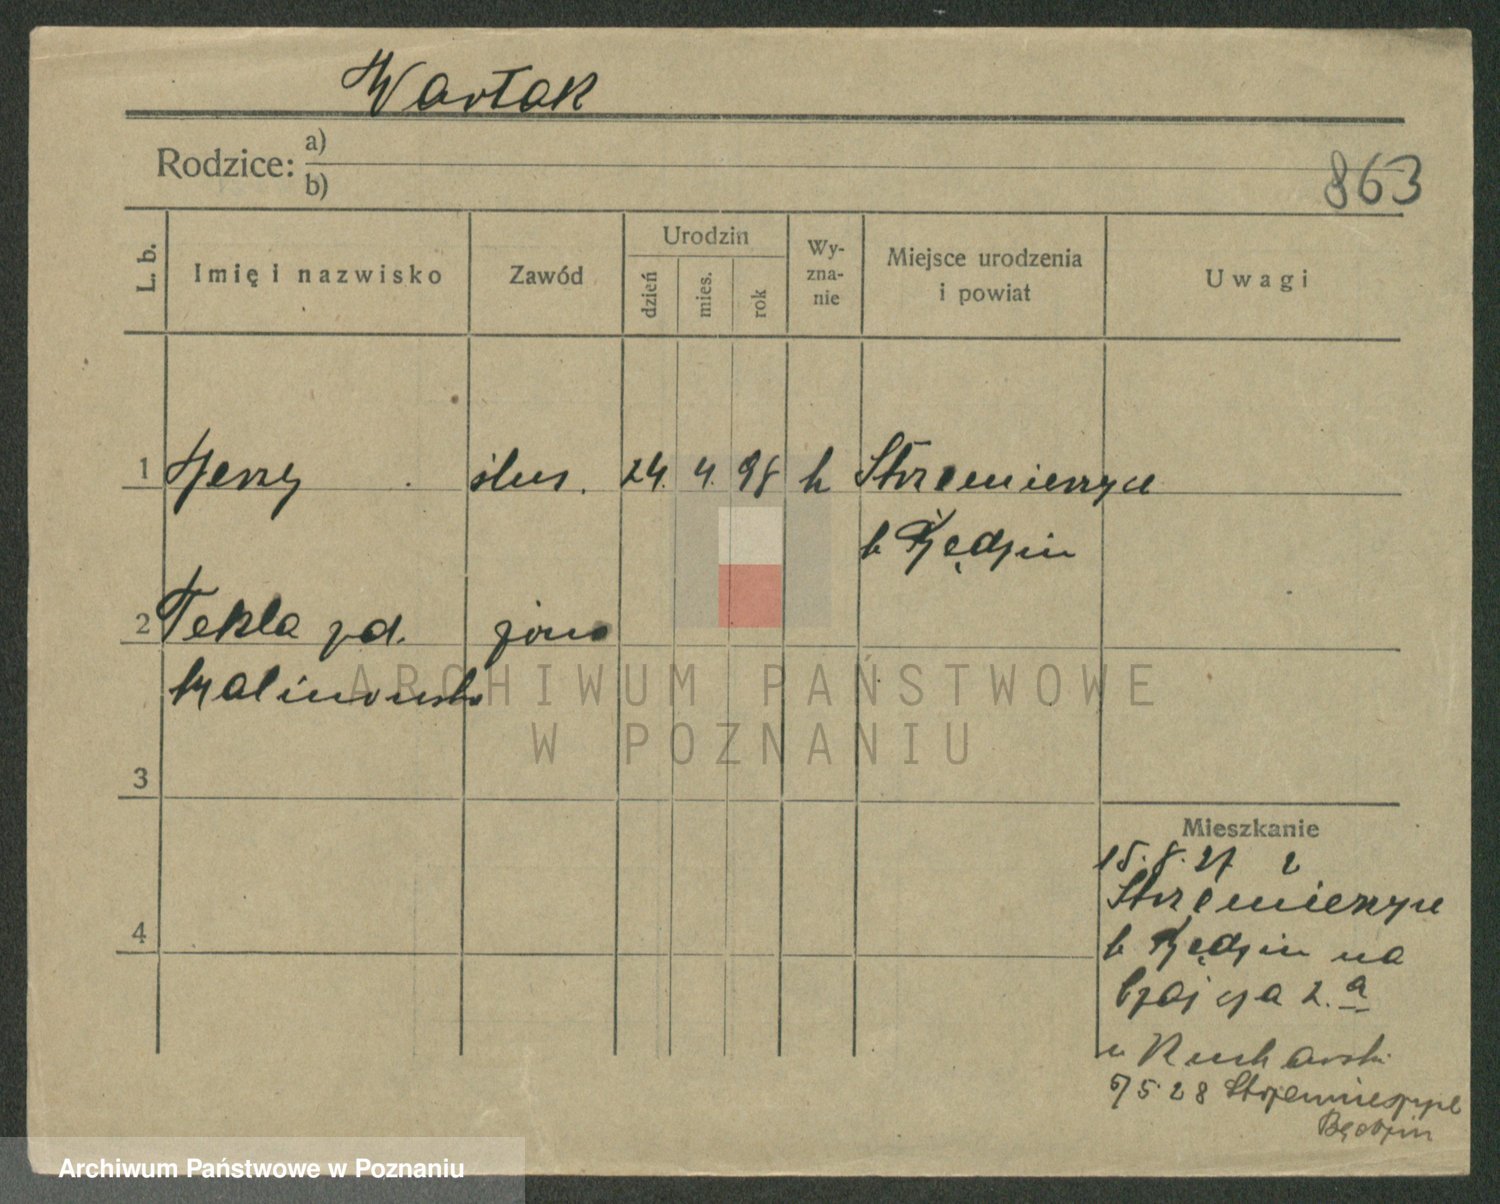 Wartak
Rodzice: a)
b)
863
L. b.
Imię i nazwisko
Zawód
Urodzin
dzień
mies.
rok
Wy-
zna-
nie
Miejsce urodzenia
i powiat
Uwagi
1 Jerzy ślus. 24. 4. 98 k Strzemieszyce
b Będzin
2 Tekla zd. żona
Malinowska
ARCHIWUM PAŃSTWOWE
W POZNANIU
3
4
Mieszkanie
15.8.27 z
Strzemieszyce
b Będzin na
2. a
u Kucharski
5 28 Strzemieszyce
Będzin
Archiwum Państwowe w Poznaniu